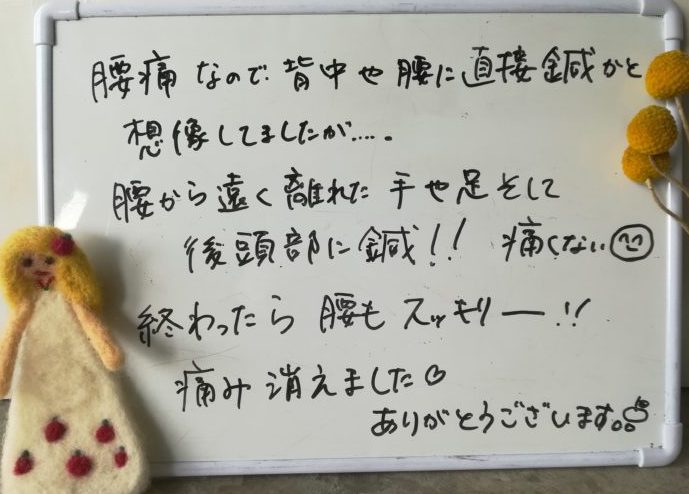 腰痛なので背中や腰に直接鍼かと
想像してましたが.....
腰から遠く離れた手や足そして
後頭部に鍼!! 痛くない
終わったら腰もスッキリー!!
痛み消えました♡
ありがとうございます。